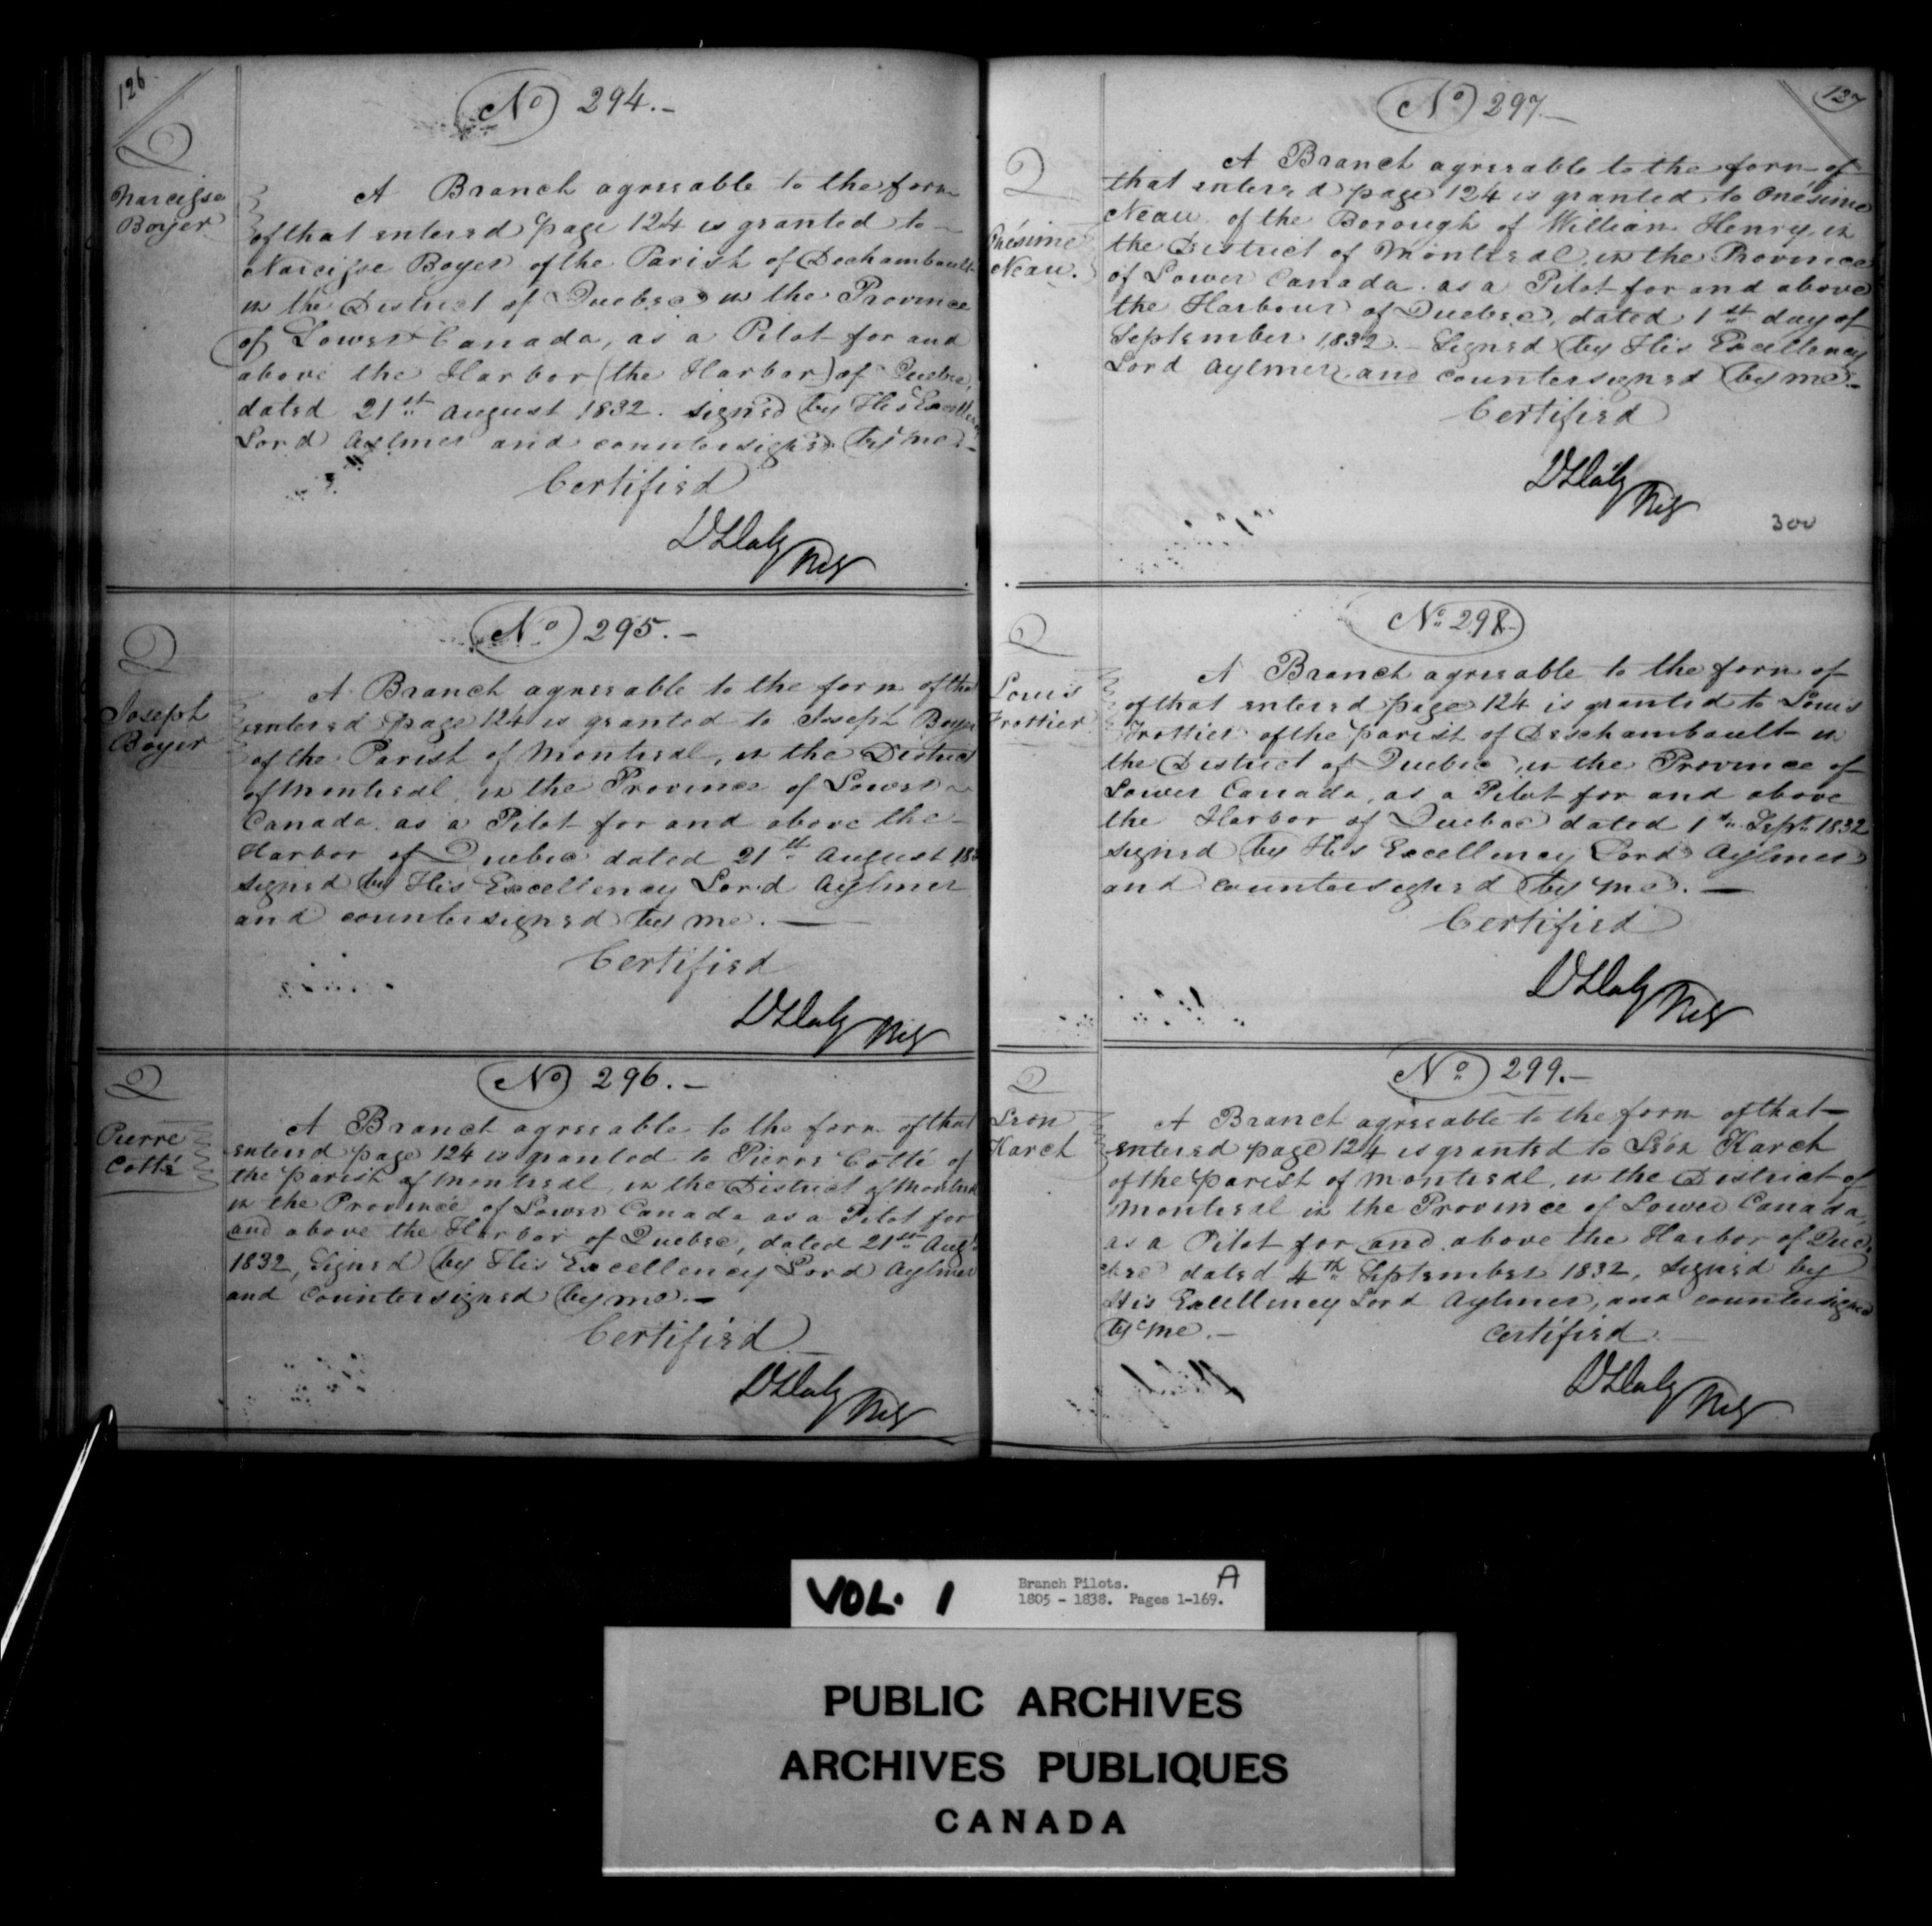 126
No 294.-
Narcisse
Boyer
A Branch agreeable to the form
of that entered page 124 is granted to
Narcisse Boyer of the Parish of Dechambault
in the District of Quebec in the Province
of Lower Canada, as a Pilot for and
above the Harbor (the Harbor) of Quebec,
dated 21st August 1832. signed by His Excellency
Lord Aylmer and countersigned by me.-
Certified
D Daly Reg
No 295.-
Joseph
Boyer
A Branch agreeable to the form of that
entered page 124 is granted to Joseph Boyer
of the Parish of Montreal, in the District
of Montreal, in the Province of Lower
Canada as a Pilot for and above the
Harbor of Quebec dated 21st August 183
signed by His Excellency Lord Aylmer
and countersigned by me. —
Certified
D Daly Reg
No 296.-
Pierre
Cotté
A Branch agreeable to the form of that
entered page 124 is granted to Pierre Cotté of
the parish of Montreal, in the District of Montreal
in the Province of Lower Canada as a Pilot for
and above the Harbor of Quebec, dated 21st Augt
1832, Signed by His Excellency Lord Aylmer
and Countersigned by me.-
Certified
D Daly Reg
127
No 297-
Onésime
Neau.
A Branch agreeable to the form of
that entered page 124 is granted to Onésime
Neau of the Borough of William Henry in
the District of Montreal, in the Province
of Lower Canada as a Pilot for and above
the Harbour of Quebec, dated 1st day of
September 1832.- Signed by His Excellency
Lord Aylmer and countersigned by me.-
Certified
D Daly Reg
300
No 298-
Louis
Trottier
A Branch agreeable to the form of
of that entered page 124 is granted to Louis
Trottier of the parish of Deschambault in
the District of Quebec in the Province of
Lower Canada, as a Pilot for and above
the Harbor of Quebec dated 1st Sept 1832
signed by His Excellency Lord Aylmer
and countersigned by me. —
Certified
D Daly Reg
No 299.-
Léon
Harch
A Branch agreeable to the form of that
entered page 124 is granted to Léon Harch
of the parish of Montreal, in the District of
Montreal in the Province of Lower Canada,
as a Pilot for and above the Harbor of Que-
bec dated 4th September 1832, signed by
His Excellency Lord Aylmer, and countersigned
by me.-
Certified.
D Daly Reg
VOL. 1
Branch Pilots. A
1805 - 1838. Pages 1-169.
PUBLIC ARCHIVES
ARCHIVES PUBLIQUES
CANADA